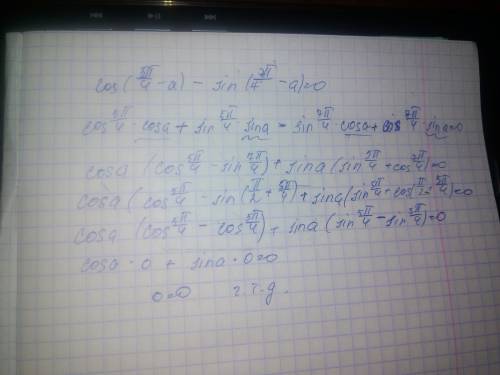 cos(5π/4 - a) - sin(7π/4 - a)=0
cos 5π/4 · cosa + sin 5π/4 · sina - sin 7π/4 · cosa + cos 7π/4 · sina=0
cosa (cos 5π/4 - sin 7π/4) + sina (sin 5π/4 + cos 7π/4)=0
cosa (cos 5π/4 - sin (π/2 + 5π/4) + sina (sin 5π/4 + cos (π/2 + 5π/4)=0
cosa (cos 5π/4 - cos 5π/4) + sina (sin 5π/4 - sin 5π/4)=0
cosa · 0 + sina · 0=0
0=0 ч.т.д.